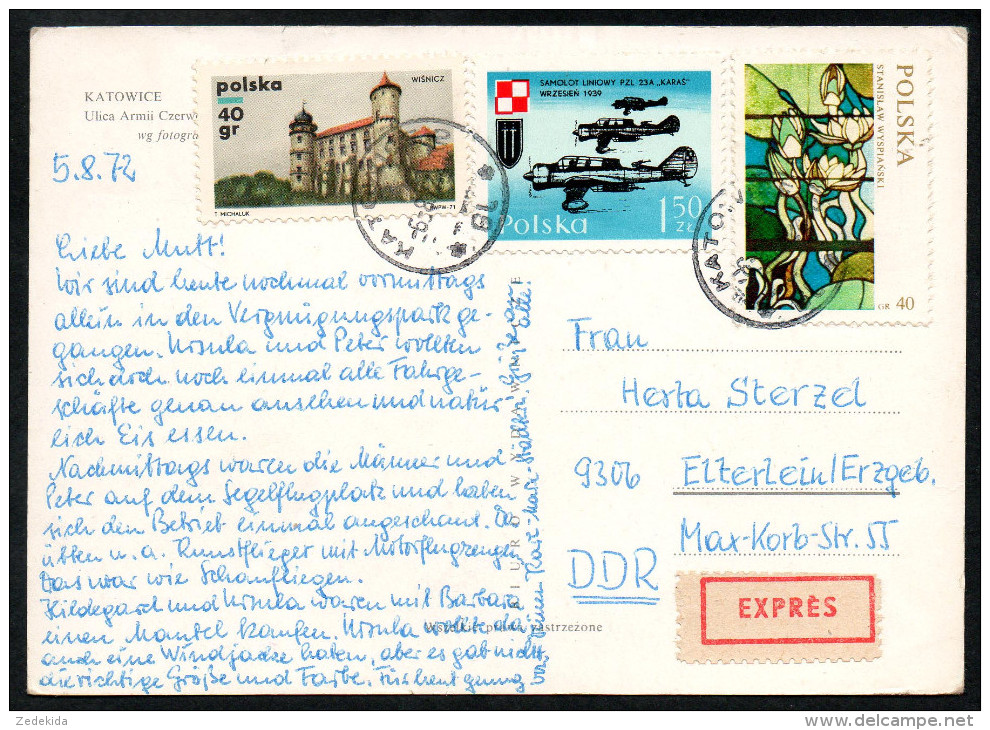 KATOWICE
Ulica Armii Czerw
wg fotogra
polska
40
gr
WIŚNICZ
T. MICHALUK
PWPW-71
SAMOLOT LINIOWY PZL. 23A „KARAŚ"
WRZESIEŃ 1939
Polska
1 50
ZŁ
POLSKA
STANISŁAW WYSPIAŃSKI
GR 40
KATO
KATO
5.8.72
Liebe Mutt!
Wir sind heute nochmal vormittags
allein in den Vergnügungspark ge-
gangen. Ursula und Peter wollten
sich doch noch einmal alle Fahrge-
schäfte genau ansehen und natür
lich Eis essen.
Nachmittags waren die Männer und
Peter auf dem Segelflugplatz und haben
sich den Betrieb einmal angeschaut. Da
übten u. a. Kunstflieger mit Motorflugzeugen
Das war wie Schaufliegen.
Hildegard und Ursula waren mit Barbara
einen Mantel kaufen. Ursula wollte da
auch eine Windjacke haben, aber es gab nicht
die richtige Größe und Farbe. Für heut genug
von Deinen Karl-Marx-Städtern
BIURO WYDAWNICZE
Wszelkie prawa zastrzeżone
Frau
Herta Sterzel
9306 Elterlein/Erzgeb.
Max-Korb-Str. 55
DDR
EXPRÈS
Zedekida
www.delcampe.net